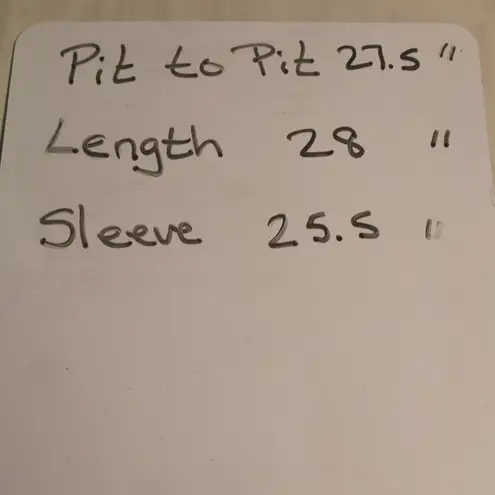 Pit to Pit 27.5 "
Length 28 "
Sleeve 25.5 "